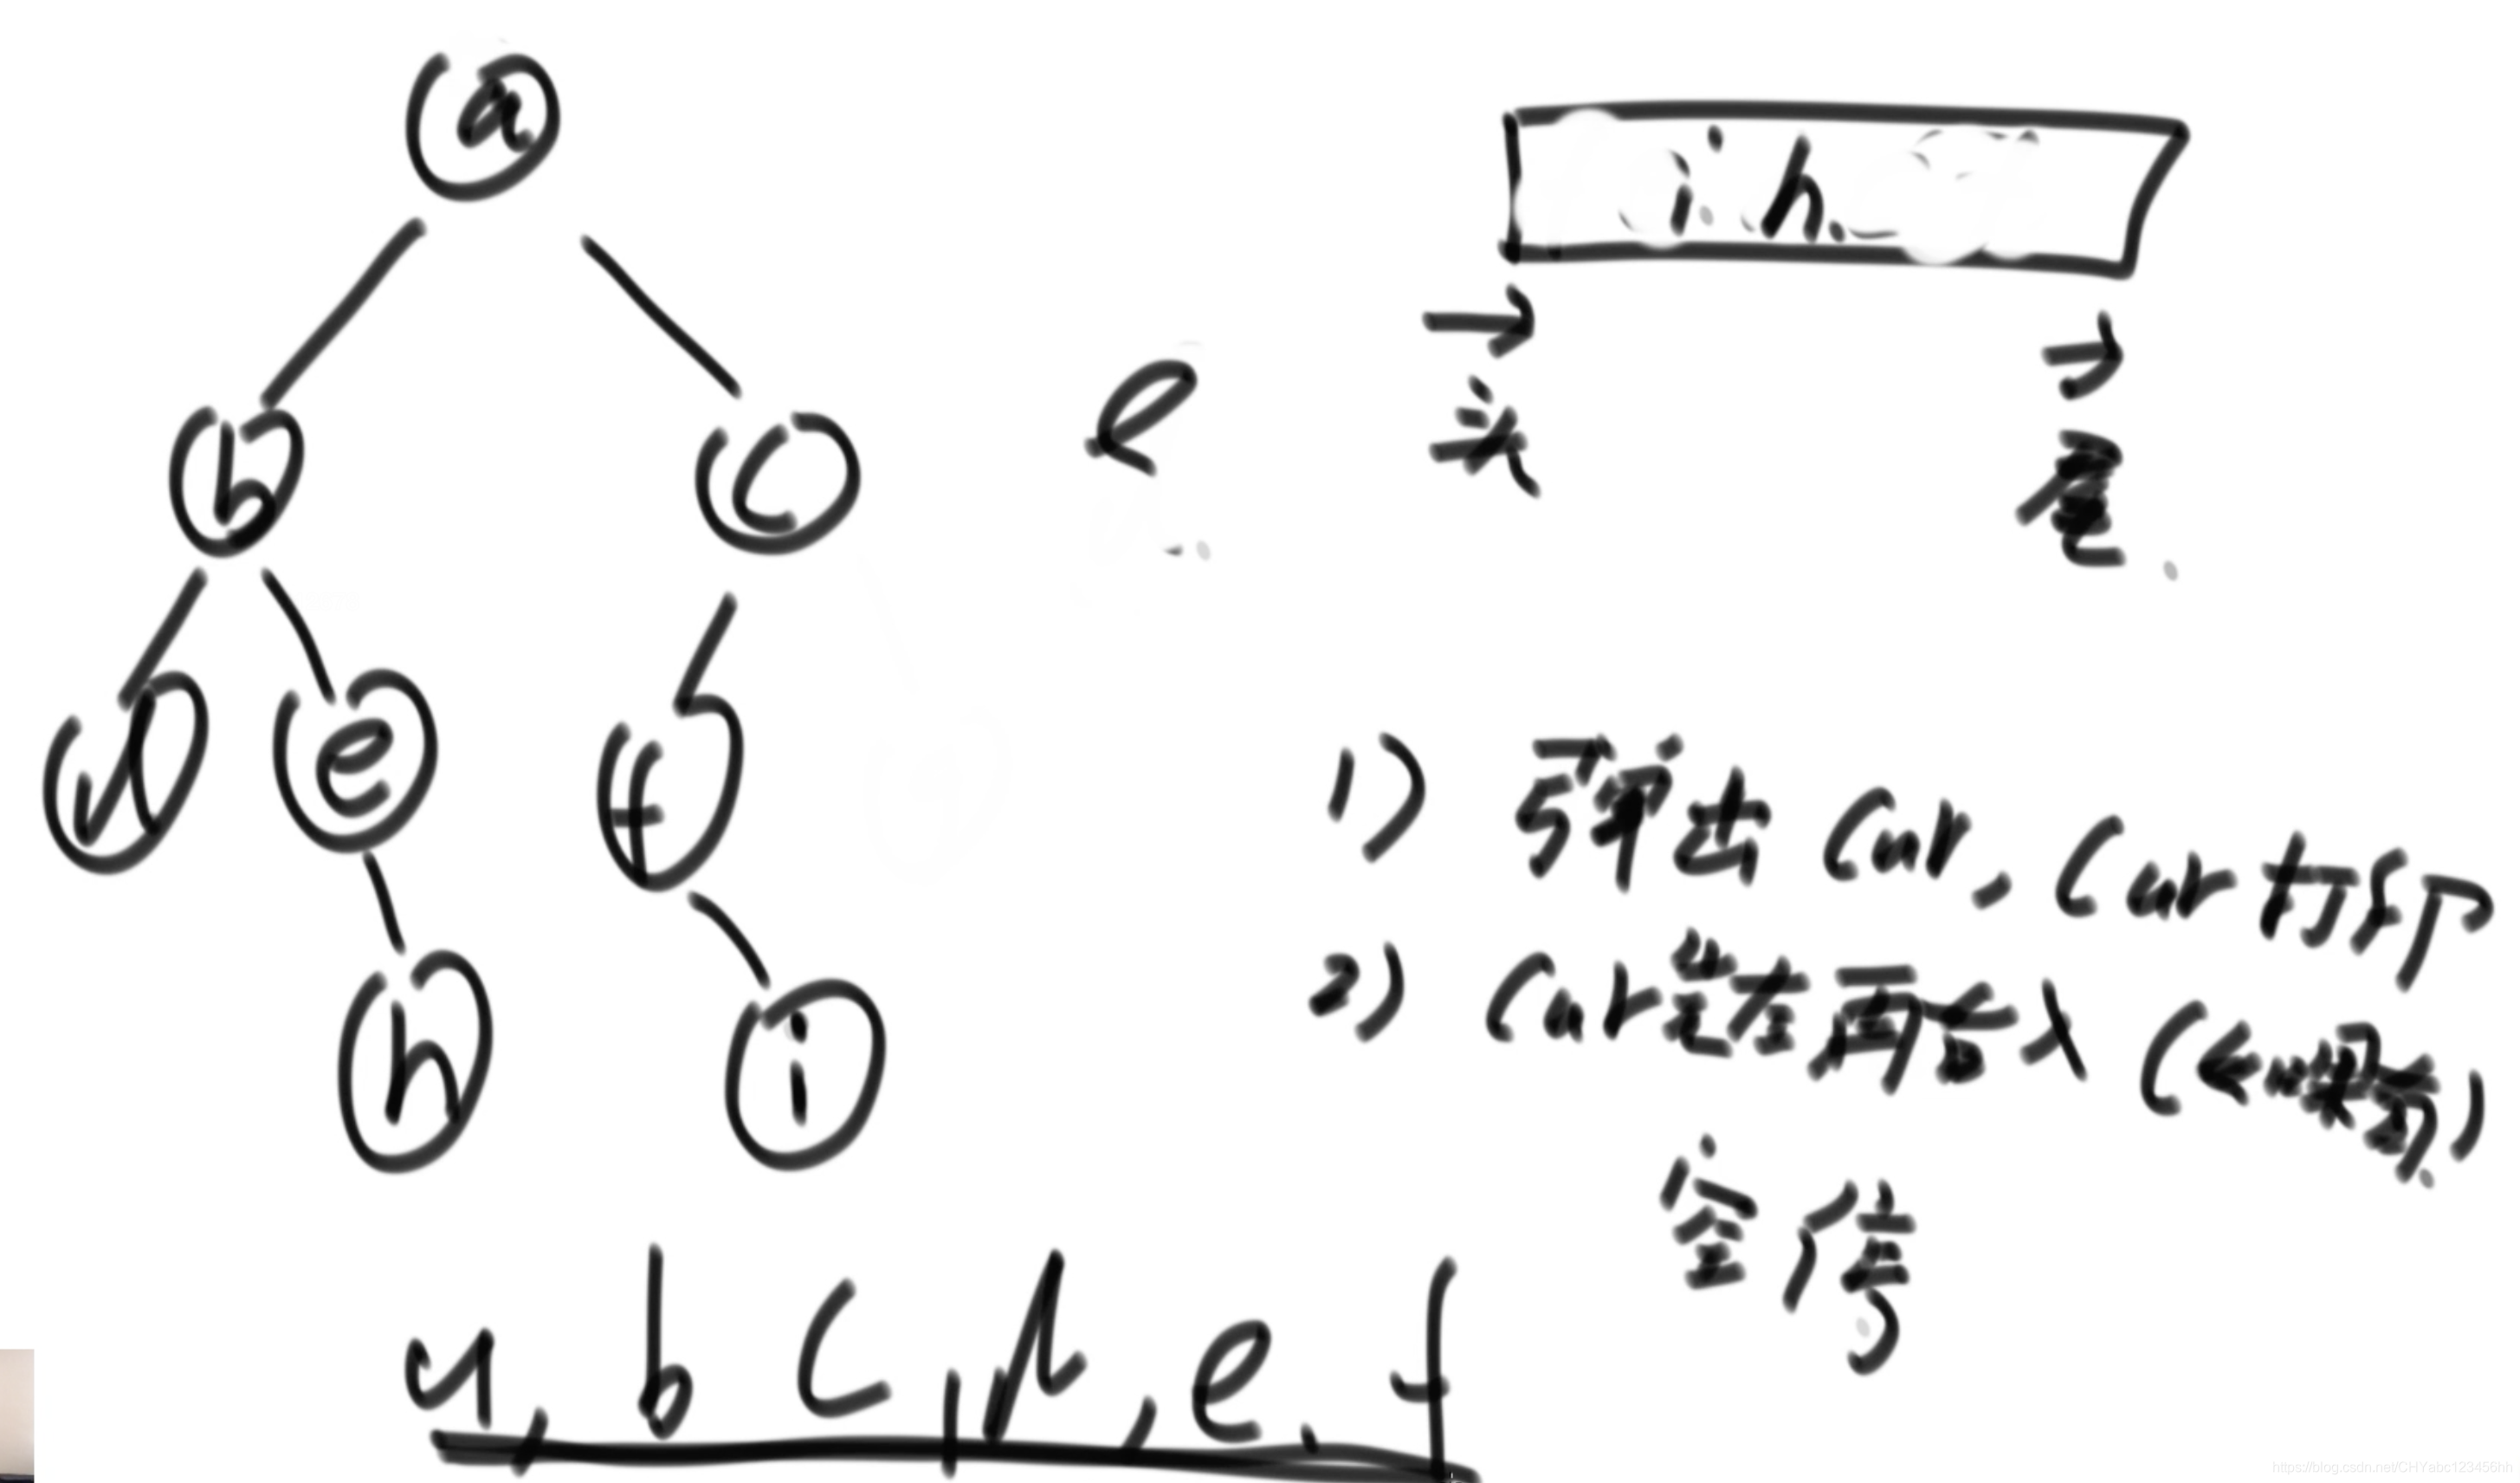 a
i. h.
b
c
e
头
尾
d
e
f
1) 弹出 Cur, Cur 打印
2) Cur 先左再右入 (如果有)
h
i
空停
a, b c, d, e, f
https://blog.csdn.net/CHYabc123456hh